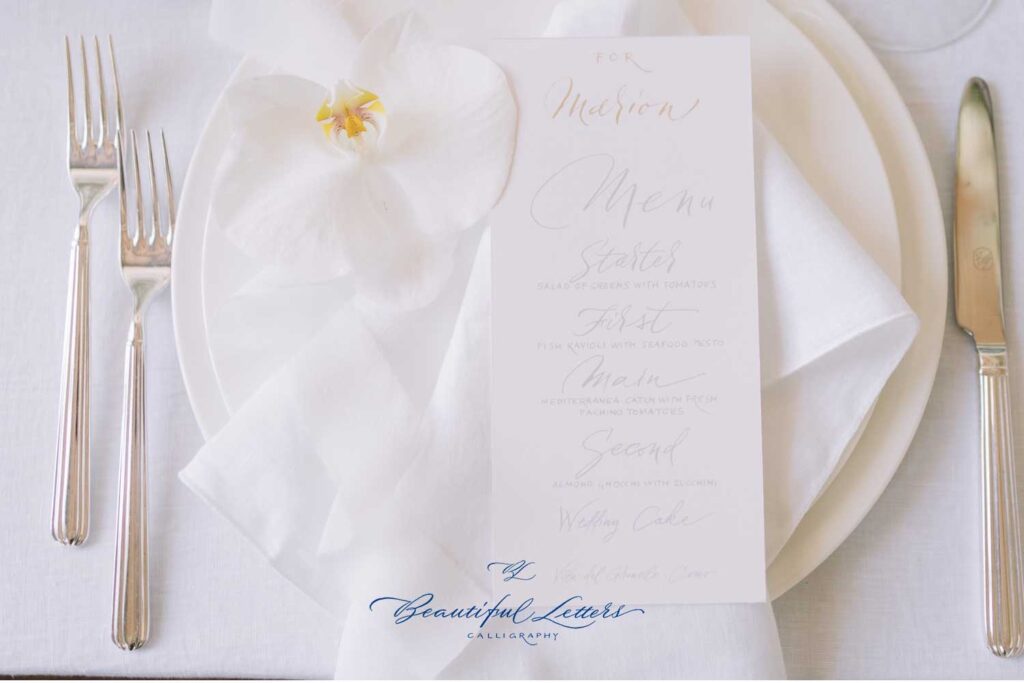 FOR
Marion
Menu
Starter
SALAD OF GREENS WITH TOMATOES
First
FISH RAVIOLI WITH SEAFOOD PESTO
Main
MEDITERRANEA CATCH WITH FRESH
PACHINO TOMATOES
Second
ALMOND GNOCCHI WITH ZUCCHINI
Wedding Cake
BL
Beautiful Letters
CALLIGRAPHY